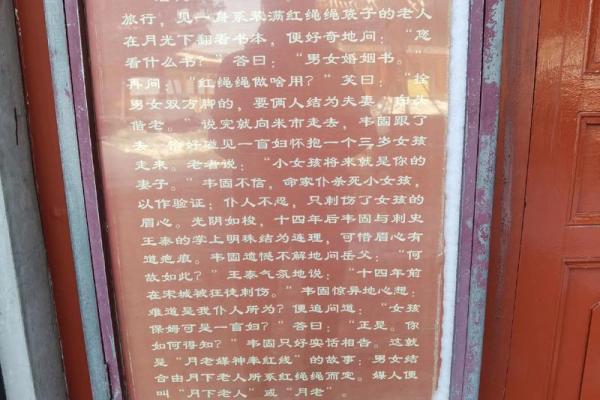 旅行，见一身系装满红绳绳袋子的老人
在月光下翻看书本，便好奇地问：“您
看什么书？”答曰：“男女婚姻书。”
再问：“红绳绳做啥用？”笑曰：“拴
男女双方脚的，要俩人结为夫妻，白头
偕老。”说完就向米市走去，韦固跟了
去，恰好碰见一盲妇怀抱一个三岁女孩
走来。老者说：“小女孩将来就是你的
妻子。”韦固不信，命家仆杀死小女孩，
以作验证；仆人不忍，只刺伤了女孩的
眉心。光阴如梭，十四年后韦固与刺史
王泰的掌上明珠结为连理，可惜眉心有
道疤痕。韦固遗憾不解地问岳父：“何
故如此？”王泰气氛地说：“十四年前
在宋城被狂徒刺伤。”韦固惊异地心想：
难道是我仆人所为？便追问道：“女孩
保姆可是一盲妇？”答曰：“正是。你
如何得知？”韦固只好实话相告。这就
是“月老媒神牵红线”的故事；男女结
合由月下老人所系红绳绳而定。媒人便
叫“月下老人”或“月老”。